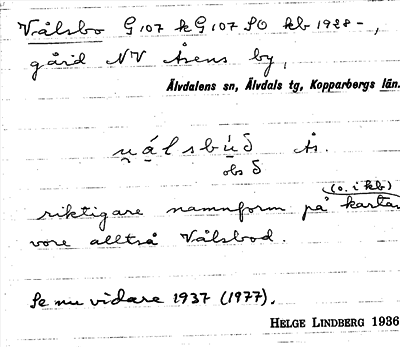 Vålsbo G 107 k G 107 SO kb 1928-,
gård NV Åsens by,
Älvdalens sn, Älvdals tg, Kopparbergs län.
u̯ålsbu̇ð Ås.
obs ð
(o. i kb)
riktigare namnform på kartan
vore alltså Vålsbod.
Se nu vidare 1937 (1977).
HELGE LINDBERG 1936